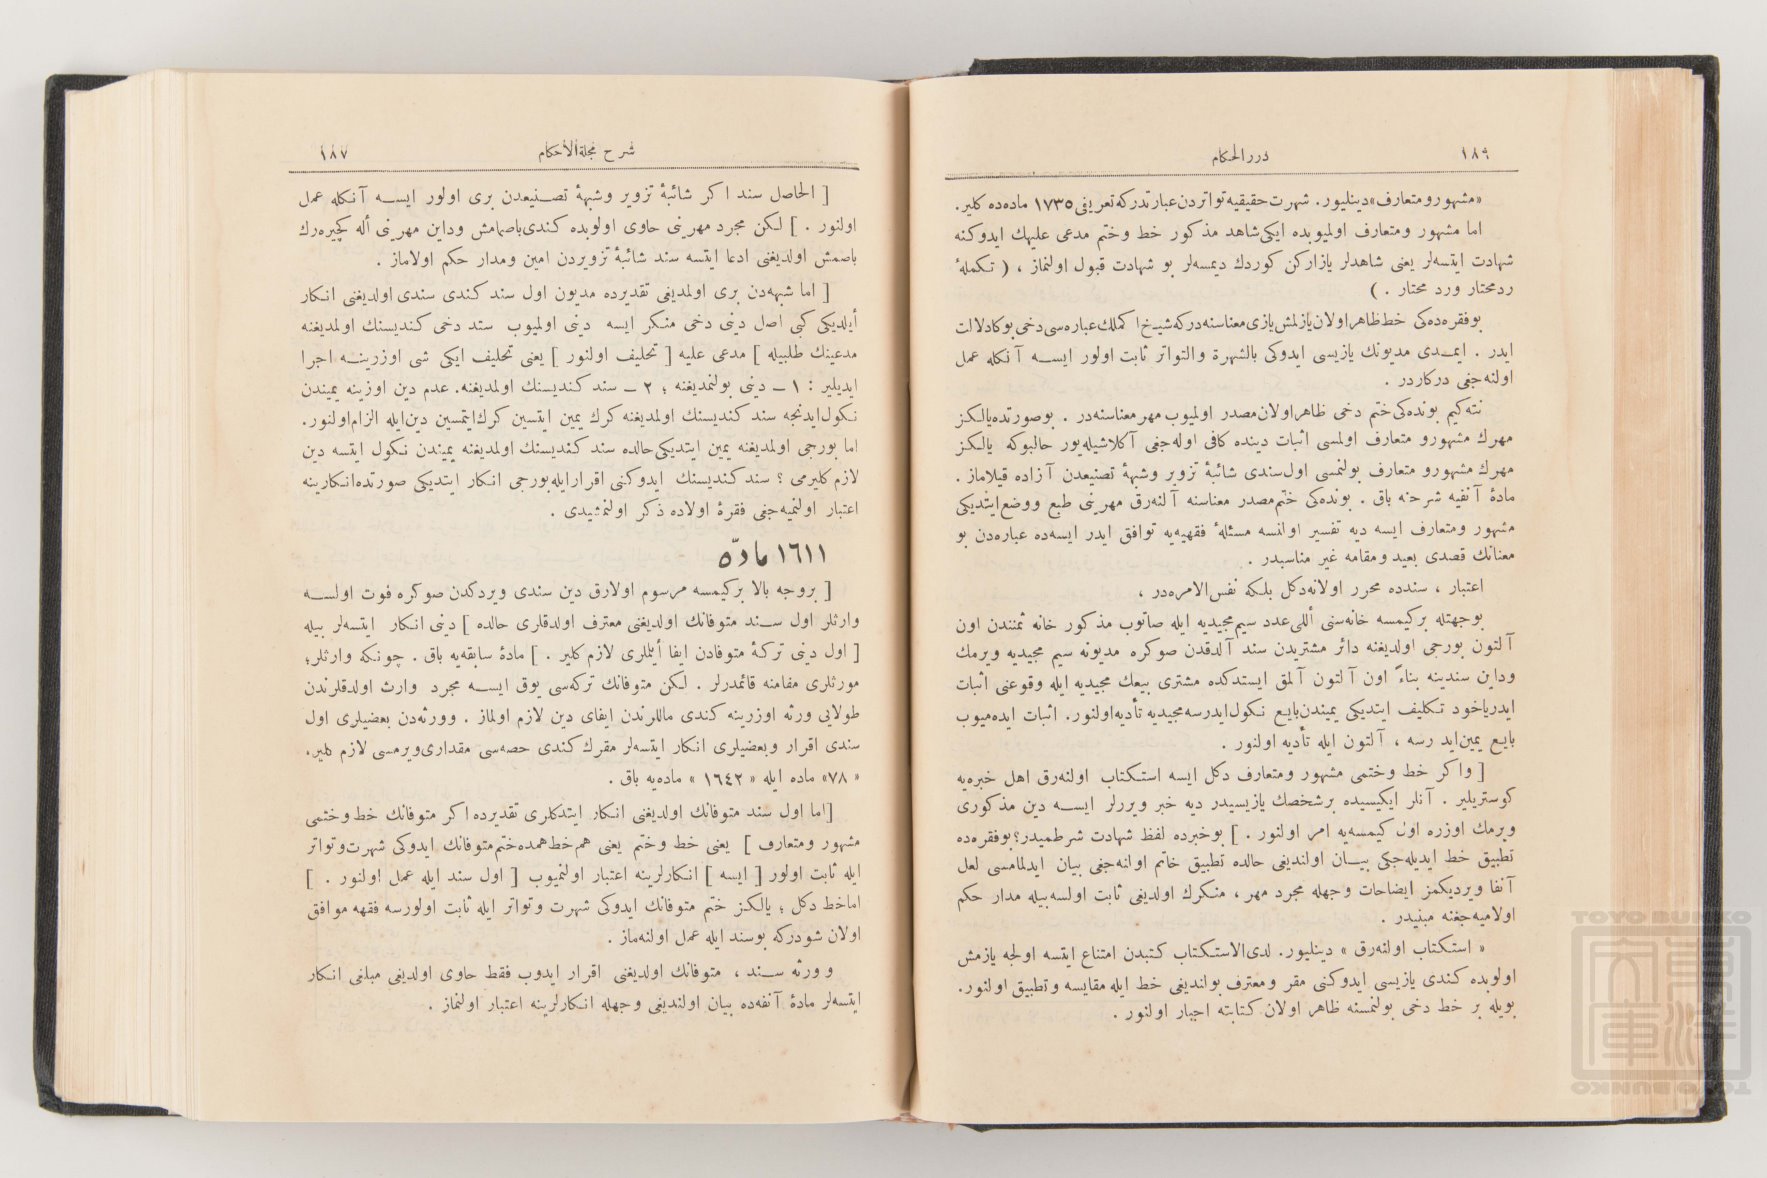 ١٨٦
درر الحكام
«مشهور ومتعارف» دينليور. شهرت حقيقيه تواتردن عبارتدركه تعريفى ١٧٣٥ ماده‌ده كلير.
اما مشهور ومتعارف اولميوبده ايكى شاهد مذكور خط وختم مدعى عليهك ايدوكنه
شهادت ايتسه‌لر يعنى شاهدلر يازاركن كوردك ديمسه‌لر بو شهادت قبول اولنماز ، ( تكملهٔ
ردمحتار ورد محتار . )
بوفقره‌ده‌كى خط ظاهر اولان يازلمش يازى معناسنه‌دركه شيخ اكملك عباره‌سى دخى بوكا دلالت
ايدر . ايمـدى مديونك يازيسى ايدوكى بالشهرة والتواتر ثابت اولور ايســه آنكله عمل
اولنه‌جغى دركاردر .
نته‌كيم بونده‌كى ختم دخى ظاهر اولان مصدر اولميوب مهر معناسنه‌در . بوصورتده يالكز
مهرك مشهورو متعارف اولمسى اثبات دينده كافى اوله‌جغى آكلاشيله‌يور حالبوكه يالكز
مهرك مشهورو متعارف بولنمسى اول سندى شائبهٔ تزوير وشبههٔ تصنيعدن آزاده قيلاماز .
مادهٔ آنفيه شرحنه باق . بونده‌كى ختم مصدر معناسنه آلنه‌رق مهرينى طبع ووضع ايتديكى
مشهور ومتعارف ايسه ديه تفسير اولنسه مسئلهٔ فقهيه‌يه توافق ايدر ايسه‌ده عباره‌دن بو
معنانك قصدى بعيد ومقامه غير مناسبدر .
اعتبار ، سندده محرر اولانه دكل بلكه نفس الامره‌در ،
بوجهتله بركيمسه خانه‌سنى أللى عدد سيم مجيديه ايله صاتوب مذكور خانه ثمنندن اون
آلتون بورجى اولديغنه دائر مشتريدن سند آلدقدن صوكره مديونه سيم مجيديه ويرمك
وداين سندينه بناءً اون آلتون آلمق ايستدكده مشترى بيعك مجيديه ايله وقوعنى اثبات
ايدر ياخود تكليف ايتديكى يميندن بايع نكول ايدرسه مجيديه تأديه اولنور. اثبات ايده‌ميوب
بايع يمين ايد رسه ، آلتون ايله تأديه اولنور .
[ واكر خط وختمى مشهور ومتعارف دكل ايسه استكتاب اولنه‌رق اهل خبره‌يه
كوستريلير . آنلر ايكيسيده برشخصك يازيسيدر ديه خبر ويررلر ايســه دين مذكورى
ويرمك اوزره اول كيمسه‌يه امر اولنور . ] بوخبرده لفظ شهادت شرطميدر؟ بوفقره‌ده
تطبيق خط ايديله‌جكى بيــان اولنديغى حالده تطبيق خاتم اولنه‌جغى بيان ايدلمامسى لعل
آنفا ويرديكمز ايضاحات وجهله مجرد مهر ، منكرك اولديغى ثابت اولسه بيله مدار حكم
اولاميه‌جغنه مبنيدر .
« استكتاب اولنه‌رق » دينليور. لدى الاستكتاب كتبدن امتناع ايتسه اولجه يازمش
اولوبده كندى يازيسى ايدوكنى مقر ومعترف بولنديغى خط ايله مقايسه وتطبيق اولنور.
بويله بر خط دخى بولنمسنه ظاهر اولان كتابته اجبار اولنور .
شرح مجلة الاحكام
١٨٧
[ الحاصل سند اكر شائبهٔ تزوير وشبههٔ تصــنيعدن برى اولور ايســه آنكله عمل
اولنور . ] لكن مجرد مهرينى حاوى اولوبده كندى باصمامش وداين مهرينى أله كچيره‌رك
باصمش اولديغنى ادعا ايتسه سند شائبهٔ تزويردن امين ومدار حكم اولاماز .
[ اما شبهه‌دن برى اولمديغى تقديرده مديون اول سند كندى سندى اولديغنى انكار
أيلديكى كبى اصل دينى دخى منكر ايسه دينى اولميوب سند دخى كنديسنك اولمديغنه
مدعينك طلبيله ] مدعى عليه [ تحليف اولنور ] يعنى تحليف ايكى شى اوزرينــه اجرا
ايديلير : ١ ـ دينى بولنمديغنه ؛ ٢ ـ سند كنديسنك اولمديغنه. عدم دين اوزينه يميندن
نكول ايدنجه سند كنديسنك اولمديغنه كرك يمين ايتسين كرك ايتمسين دين ايله الزام اولنور.
اما بورجى اولمديغنه يمين ايتديكى حالده سند كنديسنك اولمديغنه يميندن نكول ايتسه دين
لازم كليرمى ؟ سند كنديسنك ايدوكنى اقرار ايله بورجى انكار ايتديكى صورتده انكارينه
اعتبار اولنميه‌جغى فقرهٔ اولاده ذكر اولنمشيدى .
١٦١١ مادّه
[ بروجه بالا بركيمسه مرسوم اولارق دين سندى ويردكدن صوكره فوت اولســه
وارثلر اول ســند متوفانك اولديغنى معترف اولدقلرى حالده ] دينى انكار ايتسه‌لر بيله
[ اول دينى تركهٔ متوفادن ايفا أيتملرى لازم كلير . ] مادهٔ سابقه‌يه باق . چونكه وارثلر؛
مورثلرى مقامنه قائمدرلر . لكن متوفانك تركه‌سى يوق ايســه مجرد وارث اولدقلرندن
طولايى ورثه اوزرينه كندى ماللرندن ايفاى دين لازم اولماز . وورثه‌دن بعضيلرى اول
سندى اقرار وبعضيلرى انكار ايتسه‌لر مقرك كندى حصه‌سى مقدارى ويرمسى لازم كلير.
« ٧٨» ماده ايله « ١٦٤٢ » ماده‌يه باق .
[اما اول سند متوفانك اولديغنى انكار ايتدكلرى تقديرده اكر متوفانك خط وختمى
مشهور ومتعارف ] يعنى خط وختم يعنى هم خط همده ختم متوفانك ايدوكى شهرت وتواتر
ايله ثابت اولور [ ايسه ] انكارلرينه اعتبار اولنميوب [ اول سند ايله عمل اولنور . ]
اماخط دكل ؛ يالكز ختم متوفانك ايدوكى شهرت وتواتر ايله ثابت اولورسه فقهه موافق
اولان شودركه بوسند ايله عمل اولنه‌ماز .
وورثه ســند ، متوفانك اولديغنى اقرار ايدوب فقط حاوى اولديغى مبلغى انكار
ايتسه‌لر مادهٔ آنفه‌ده بيان اولنديغى وجهله انكارلرينه اعتبار اولنماز .
TOYO BUNKO
東洋文庫
TOYO BUNKO